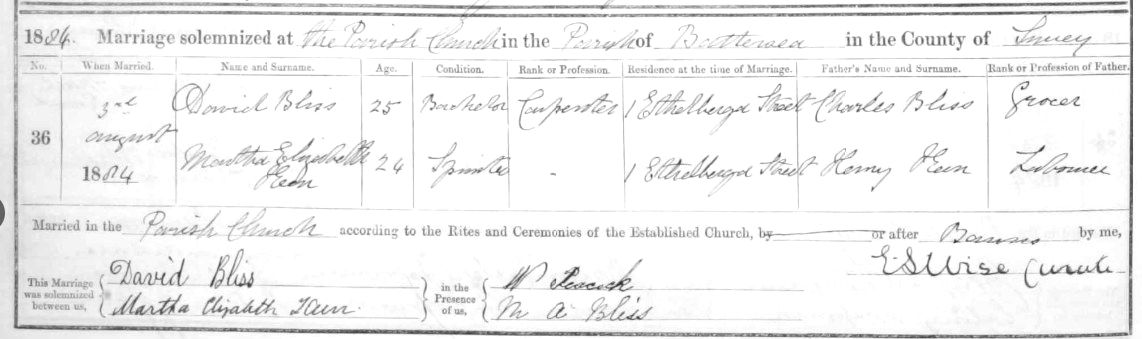 1884. Marriage solemnized at the Parish Church in the Parish of Battersea in the County of Surrey
No. When Married. Name and Surname. Age. Condition. Rank or Profession. Residence at the time of Marriage. Father's Name and Surname. Rank or Profession of Father.
36 3rd August 1884 David Bliss 25 Bachelor Carpenter 1 Ethelberga Street Charles Bliss Grocer
Martha Elizabeth 24 Spinster - 1 Ethelberga Street Henry Labourer
Married in the Parish Church according to the Rites and Ceremonies of the Established Church, by or after Banns by me,
E S Wise Curate
This Marriage was solemnized between us, David Bliss in the Presence of us, W Peacock
Martha Elizabeth M A Bliss